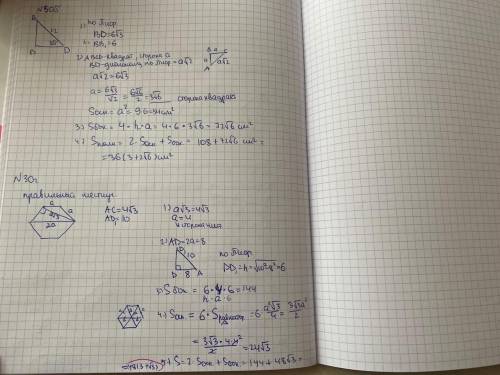 N 305
B₁
12
30°
B D
1) по т.Пиф.
BD=6√3
2. BB₁=6
2) ABCD-квадрат, сторона a
BD-диагональ, по т.Пиф = a√2
B a C
a a√2
A
a√2=6√3
a = 6√3/√2 = 6√6/2 = 3√6 сторона квадрата
Sосн = a² = 9·6=54 см²
3) Sбок = 4·h·a = 4·6·3√6 = 72√6 см²
4) Sполн = 2·Sосн + Sбок = 108+72√6 см² =
=36(3+2√6) см²
N 307
правильный шестиуг.
a a
4√3 a
2a
AC=4√3
AD₁=10
1) a√3=4√3
a=4
сторона
2) AD=2a=8
D₁
10
D 8 A
по т.Пиф.
DD₁=h=√10²-8²=6
3) Sбок = 6·4·6=144
h·a·6
4) Sосн = 6·Sравностор = 6·a²√3/4 = 3√3a²/2
= 3√3·4²/2 = 24√3
5) S=2·Sосн+Sбок = 144+48√3=
=48(3+√3)